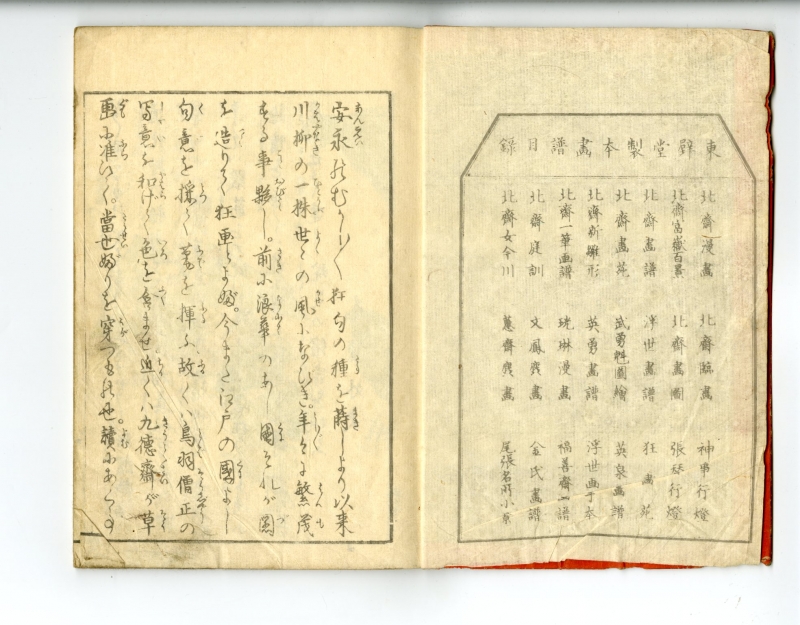 東壁堂製本畫譜目録
北齋漫畫 北齋臨畫 神事行燈
北齋富嶽百景 北齋畫圖 張 行燈
北齋畫譜 浮世畫譜 狂畫苑
北齋畫苑 武勇魁圖繪 英泉畫譜
北齋新雛形 英勇畫譜 浮世画手本
北齋一筆画譜 光琳漫畫 福善齋画譜
北齋庭訓 文鳳麁畫 金氏畫譜
北齋女今川 蕙齋麁畫 尾張名所小景
安永のむかし 狂句の種を蒔しより以来
川柳の一株世々の風になびき。年々に繁茂
する事夥し。前に浪華のあし國それが圖
を造りて狂画とよぶ。今また江戸の國よし
句意を採て筆を揮ふ、故 鳥羽僧正の
写意を和げて色を 近く八九徳齋が草
画に准らへ。當世ぶりを穿つもの也。讀にあらず